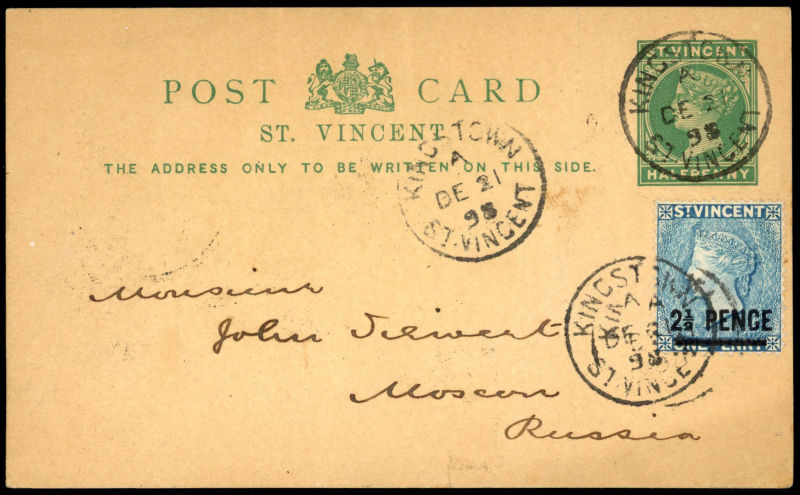 POST CARD
ST. VINCENT
THE ADDRESS ONLY TO BE WRITTEN ON THIS SIDE.
ST. VINCENT
HALFPENNY
KINGSTOWN
A
DE 21
98
ST. VINCENT
KINGSTOWN
A
DE 21
98
ST. VINCENT
ST VINCENT
2½ PENCE
ONE PENNY
KINGSTOWN
A
DE
98
ST. VINCENT
Monsieur
John Siewert
Moscow
Russia